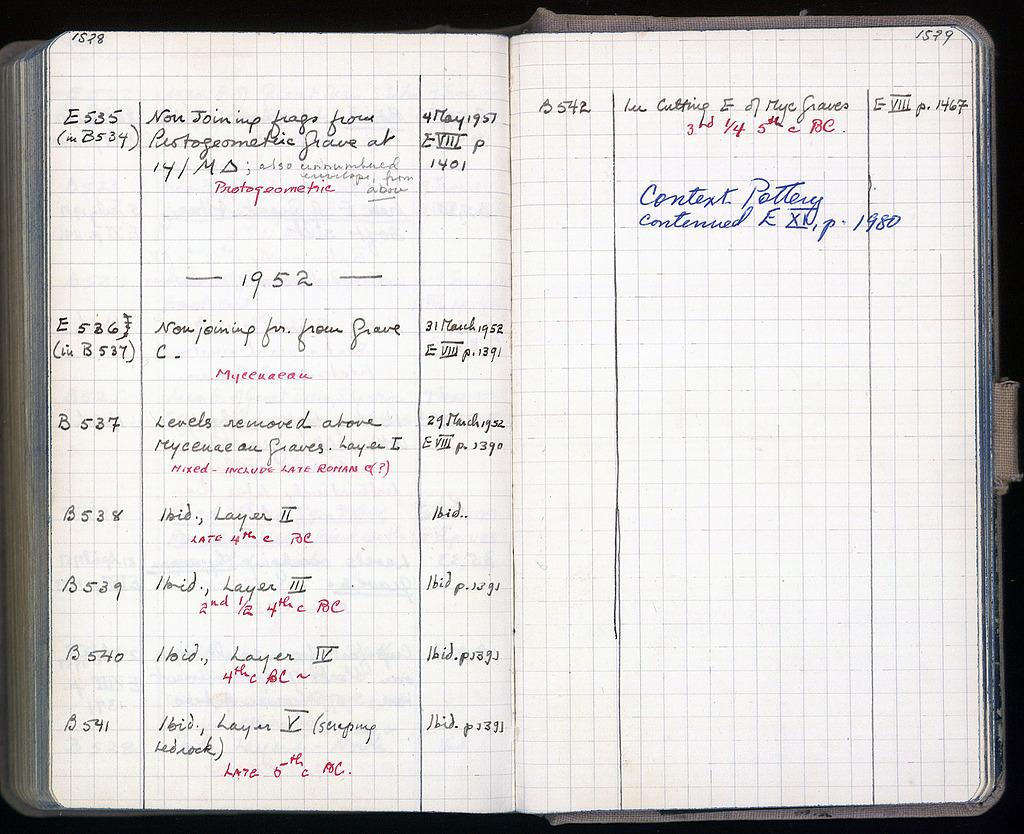 1528
E 535 Non Joining frags from 4 May 1951
(in B 534) Protogeometric Grave at E VIII p
14/ΜΔ; also unnumbered 1401
envelope, from
Protogeometric above
— 1952 —
E 536 Non joining fr. from Grave 31 March 1952
(in B 537) C. E VIII p. 1391
Mycenaean
B 537 Levels removed above 29 March 1952
Mycenaean Graves. Layer I E VIII p. 1390
MIXED - INCLUDE LATE ROMAN C(?)
B 538 Ibid., Layer II Ibid..
LATE 4th c BC
B 539 Ibid., Layer III Ibid p. 1391
2nd 1/2 4th c BC
B 540 Ibid., Layer IV Ibid. p 1391
4th c BC ~
B 541 Ibid., Layer V (scraping Ibid. p 1391
bedrock)
LATE 5th c BC.
1529
B 542 In Cutting E of Myc Graves E VIII p. 1467
3rd 1/4 5th c BC.
Context Pottery
contenued E XI, p. 1980